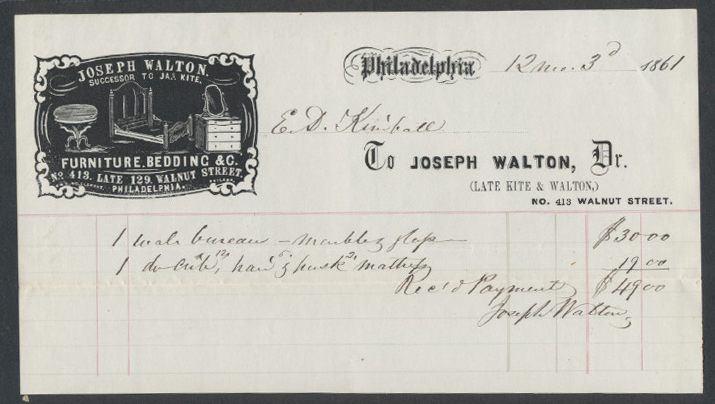 JOSEPH WALTON.
SUCCESSOR TO JAS KITE,
FURNITURE, BEDDING &C.
No 413. LATE 129. WALNUT STREET,
PHILADELPHIA.
Philadelphia 12 mo. 3d 1861
E. D. Kimball
To JOSEPH WALTON, Dr.
(LATE KITE & WALTON,)
NO. 413 WALNUT STREET.
1 bureau - marble top $30.00
1 do crib, hair & husk mattress 19.00
Rec'd Payment $49.00
Joseph Walton